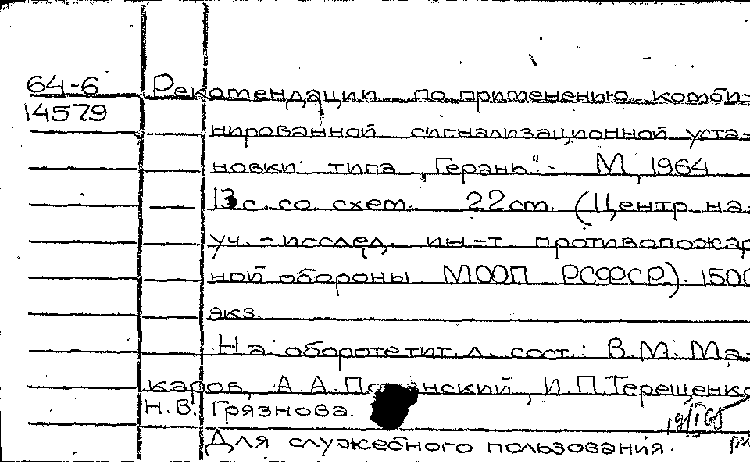 64-6 Рекомендации по применению комби-
14579
нированной сигнализационной уста-
новки типа „Герань". - М, 1964
13 с. со схем. 22 см. (Центр. на-
уч. - исслед. ин-т противопожар
ной обороны МООП РСФСР). 1500
экз.
На обороте тит. л. сост.: В. М. Ма-
каров, А. А. , И. П. Терещенко
Н. В. Грязнова.
Для служебного пользования.